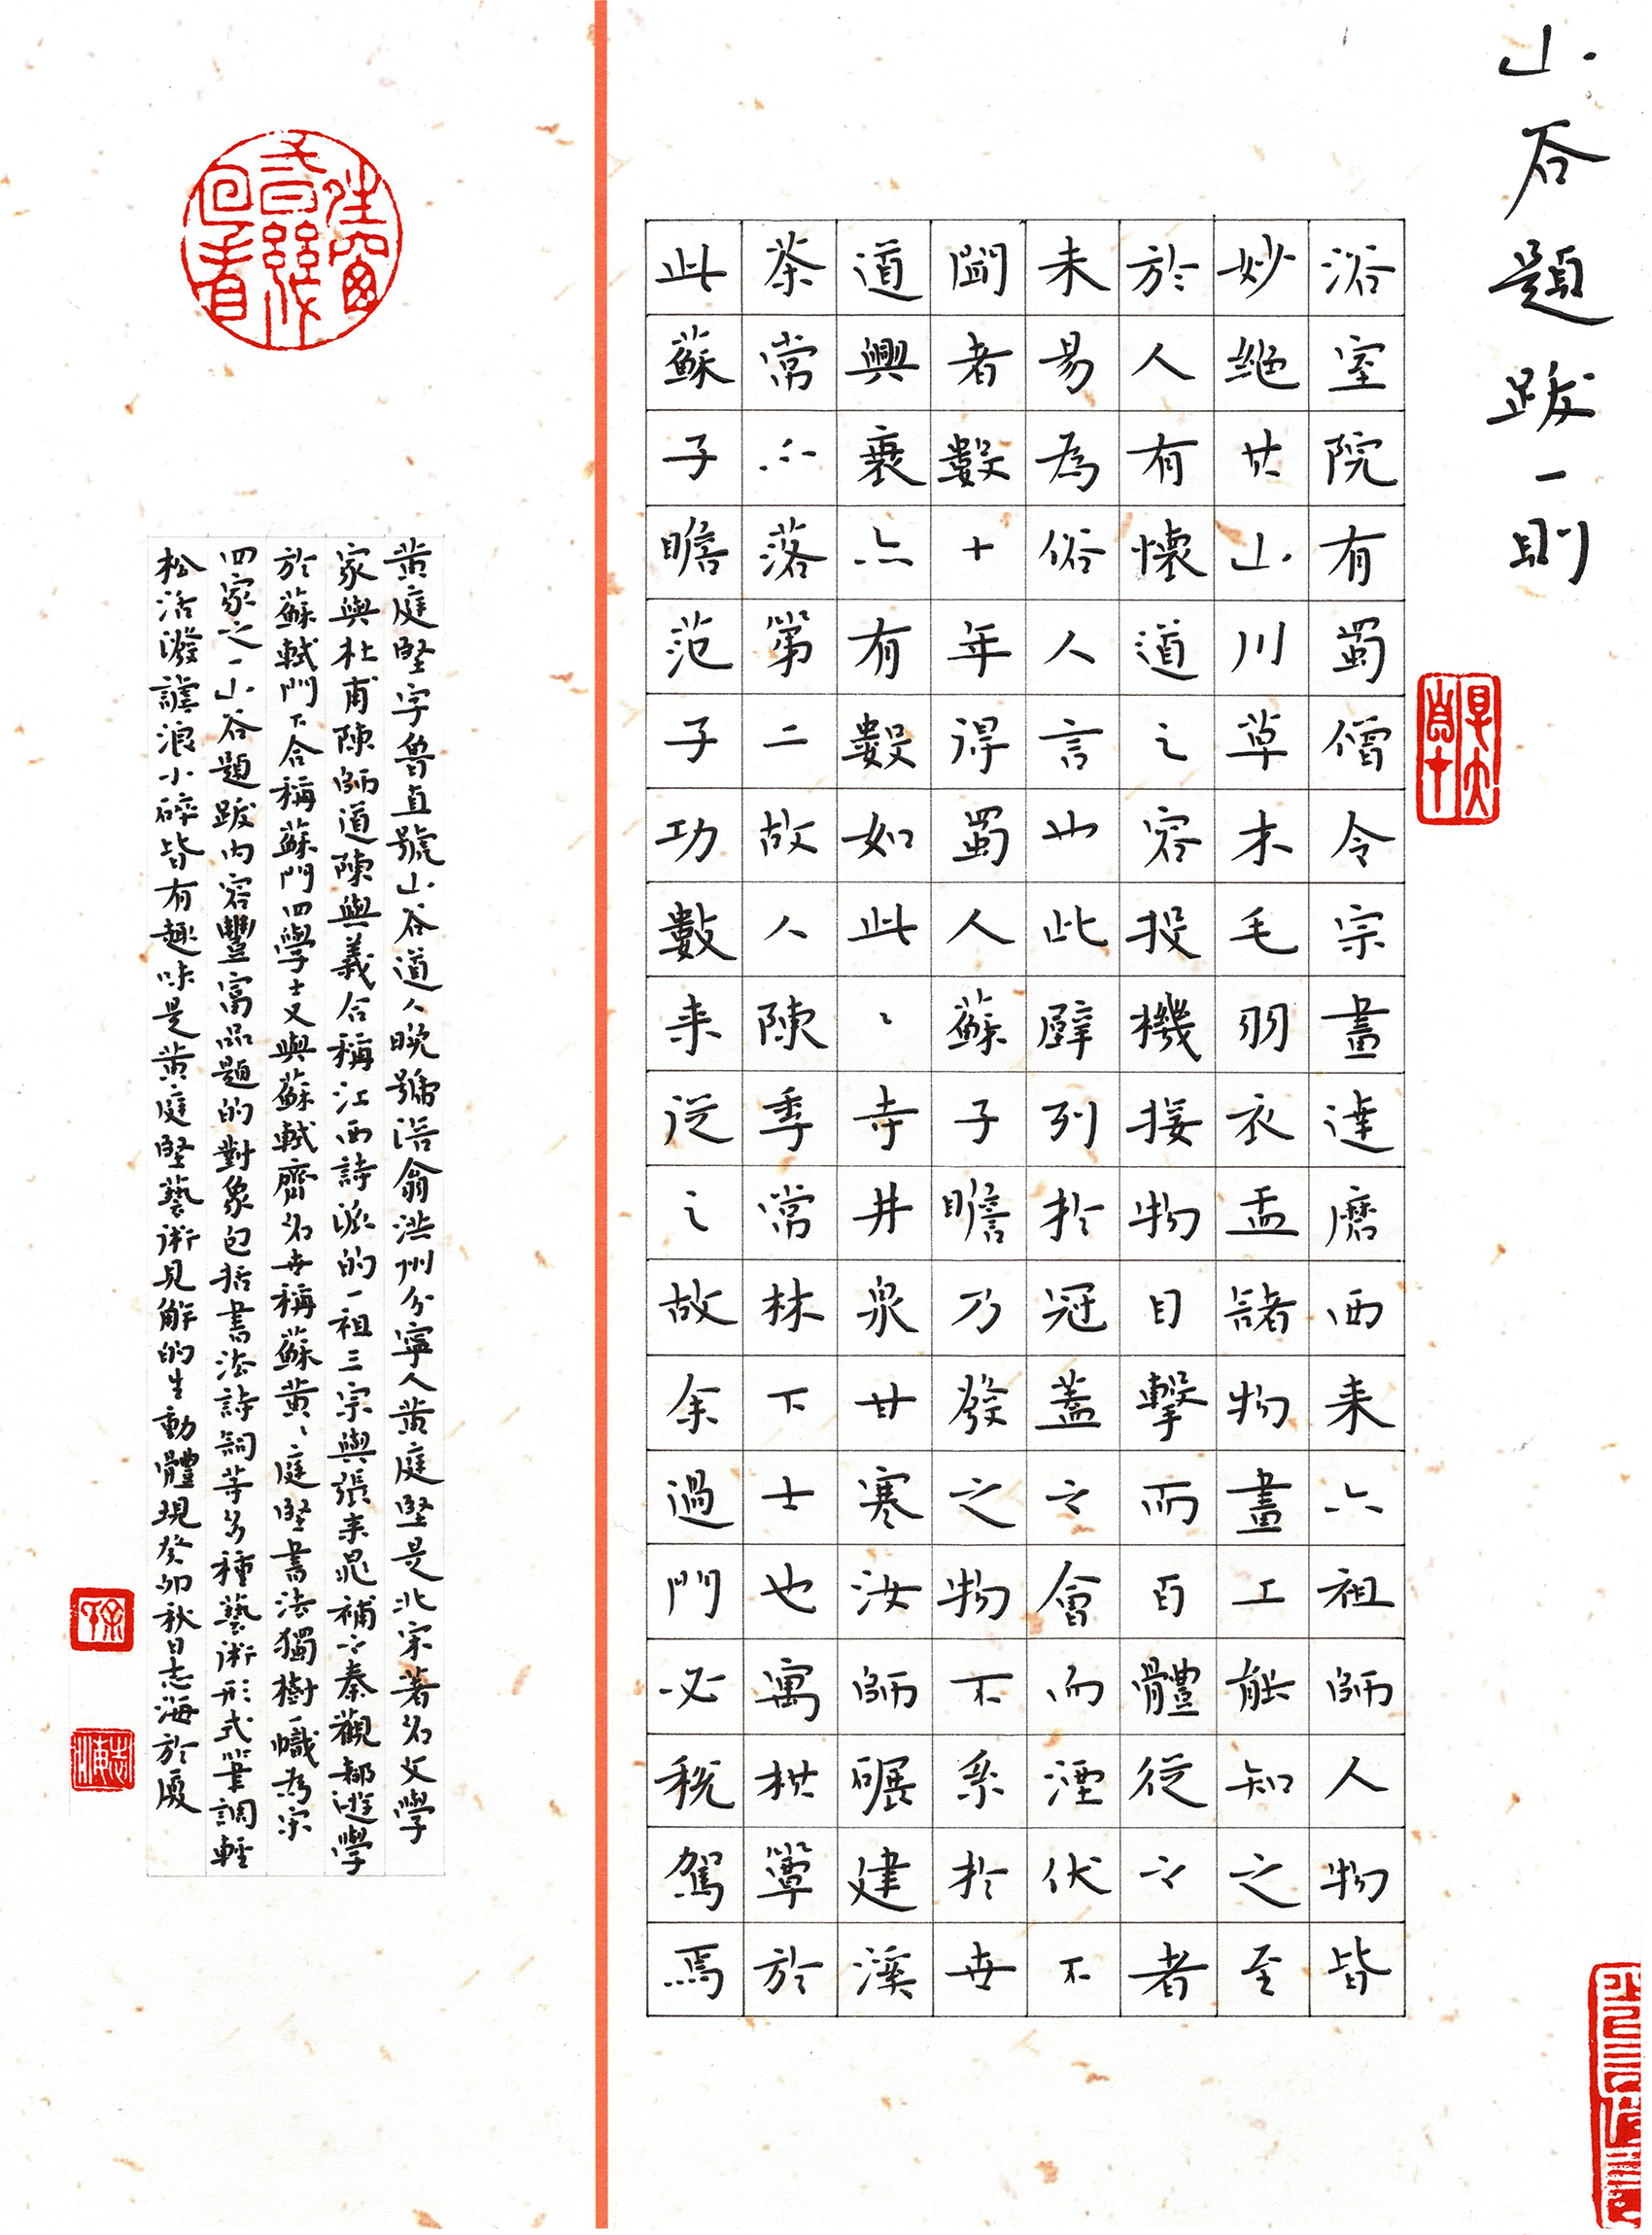 山谷題跋一則
浴室院有蜀僧令宗畫達磨西来六祖師人物皆
妙絕其山川草木毛羽衣盂諸物畫工能知之至
於人有懷道之容投機接物目擊而百體從之者
未易為俗人言也此壁列於冠蓋之會而湮伏不
聞者數十年得蜀人蘇子瞻乃發之物不系於世
道興衰亦有數如此此寺井泉甘寒汝師碾建溪
茶常不落第二故人陳季常林下士也寓棋簟於
此蘇子瞻范子功數来從之故余過門必稅駕焉
黃庭堅字魯直號山谷道人晚號涪翁洪州分寧人黃庭堅是北宋著名文學
家與杜甫陳師道陳與義合稱江西詩派的一祖三宗與張耒晁補之秦觀都遊學
於蘇軾門下合稱蘇門四學士又與蘇軾齊名世稱蘇黃黃庭堅書法獨樹一幟為宋
四家之一山谷題跋內容豐富品題的對象包括書法詩詞等多種藝術形式筆調輕
松活潑謔浪小碎皆有趣味是黃庭堅藝術見解的生動體現癸卯秋日志海於廈
志海